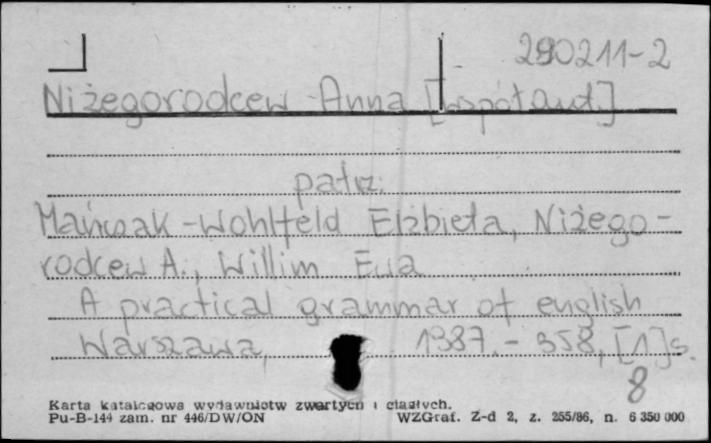 290211-2
Niżegorodcew Anna [współaut.]
patrz:
Mańczak-Wohlfeld Elżbieta, Niżego-
rodcew A., Willim Ewa
A practical grammar of english
Warszawa, 1987.- 358, [1]s.
8
Karta katalogowa wydawnictw zwartych i ciągłych.
Pu-B-144 zam. nr 446/DW/ON WZGraf. Z-d 2, z. 255/86, n. 6 350 000